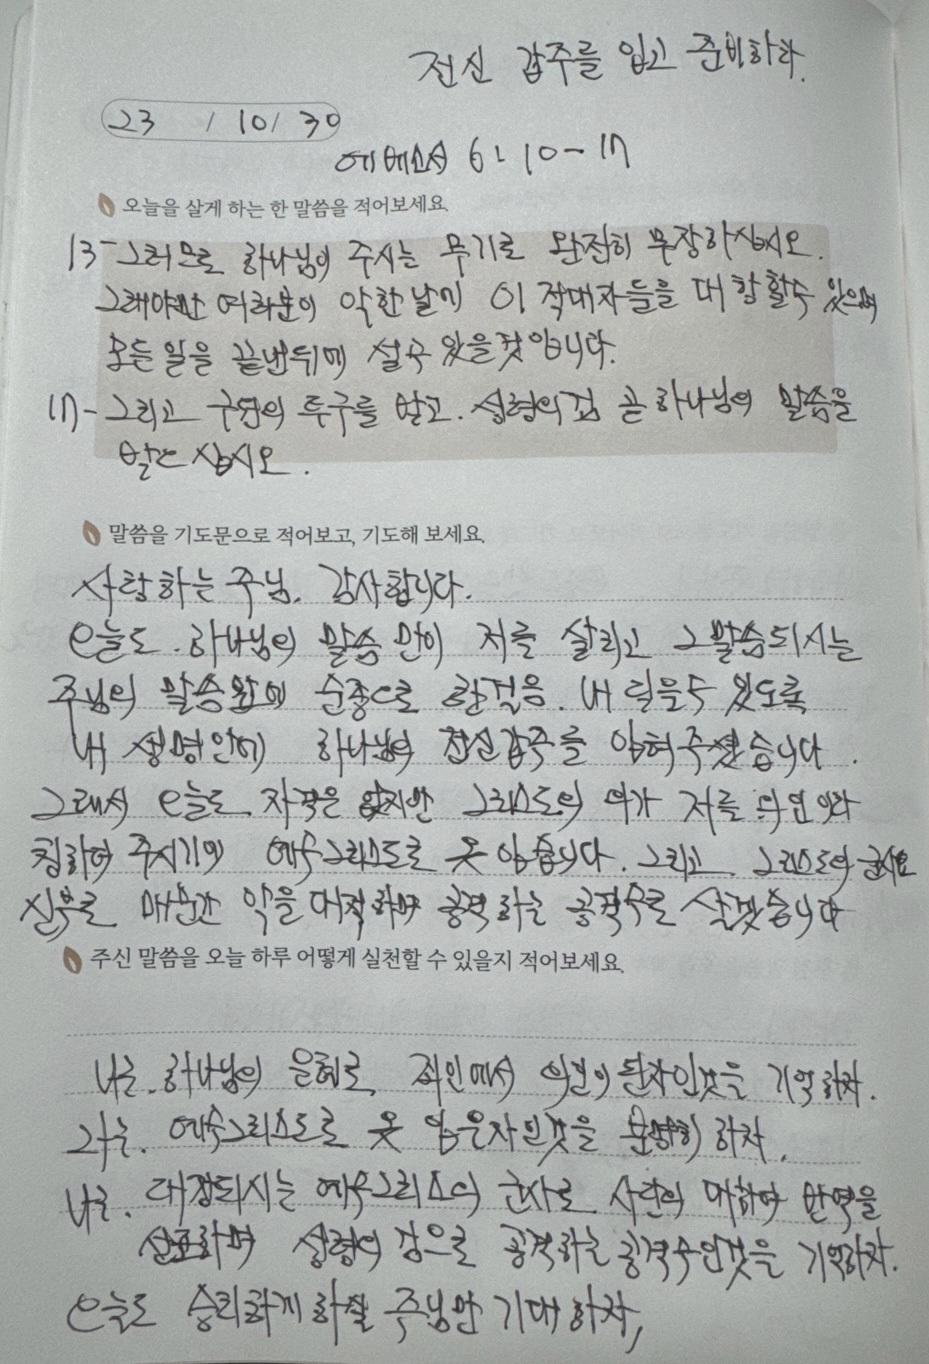 전신 갑주를 입고 준비하라.
23 / 10 / 30
에베소서 6:10-17
오늘을 살게 하는 한 말씀을 적어보세요.
13- 그러므로 하나님이 주시는 무기로 완전히 무장하십시오.
그래야만 여러분이 악한날에 이 적대자들을 대항할수 있으며
모든일을 끝낸뒤에 설수 있을것입니다.
17- 그리고 구원의 투구를 받고. 성령의검 곧 하나님의 말씀을
받으십시오.
말씀을 기도문으로 적어보고, 기도해 보세요.
사랑하는 주님. 감사합니다.
오늘도. 하나님의 말씀만이 저를 살리고 그말씀되시는
주님의 말씀앞에 순종으로 한걸음. 내 딛을수 있도록
내 생명안에 하나님의 전신갑주를 입혀주셨습니다.
그래서 오늘도 자격은 없지만 그리스도의 의가 저를 의인이라
칭하여 주시기에 예수그리스도로 옷 입습니다. 그리고 그리스도의 군사요
신부로 매순간 악을 대적하며 공격하는 공격수로 살겠습니다
주신 말씀을 오늘 하루 어떻게 실천할 수 있을지 적어보세요.
나는. 하나님의 은혜로 죄인에서 의인이 된자인것을 기억하자.
나는. 예수그리스도로 옷 입은자인것을 분명히 하자.
나는. 대장되시는 예수그리스도의 군사로 사탄의 대하여 반역을
선포하며 성령의 검으로 공격하는 공격수인것을 기억하자.
오늘도 승리하게하실 주님만 기대하자,